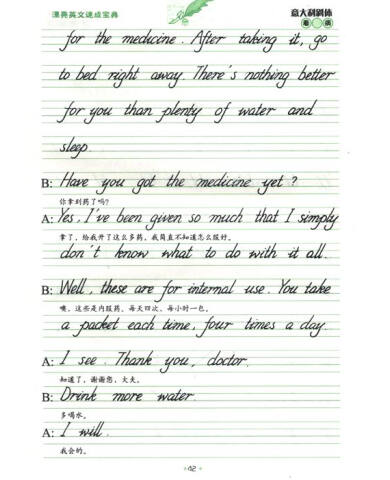 漂亮英文速成宝典
意大利斜体
for the medicine. After taking it, go
to bed right away. There's nothing better
for you than plenty of water and
sleep.
B: Have you got the medicine yet?
你拿到药了吗?
A: Yes, I've been given so much that I simply
拿了,给我开了这么多药,我简直不知道怎么服好。
don't know what to do with it all.
B: Well, these are for internal use. You take
噢,这些是内服药。每天四次,每小时一包。
a packet each time, four times a day.
A: I see. Thank you, doctor.
知道了,谢谢您,大夫。
B: Drink more water.
多喝水。
A: I will.
我会的。
42